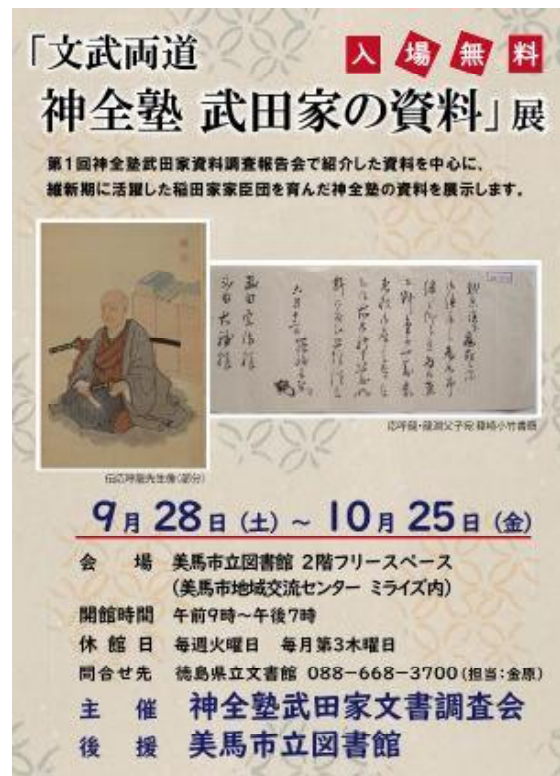 「文武両道
入場無料
神全塾 武田家の資料」展
第1回神全塾武田家資料調査報告会で紹介した資料を中心に、
維新期に活躍した稲田家家臣団を育んだ神全塾の資料を展示します。
応呼龍・龍淵父子宛 篠崎小竹書簡
伝応呼龍先生像(部分)
9月28日(土)~10月25日(金)
会 場 美馬市立図書館 2階フリースペース
(美馬市地域交流センター ミライズ内)
開館時間 午前9時~午後7時
休館日 毎週火曜日 毎月第3木曜日
問合せ先 徳島県立文書館 088-668-3700(担当:金原)
主 催 神全塾武田家文書調査会
後 援 美馬市立図書館